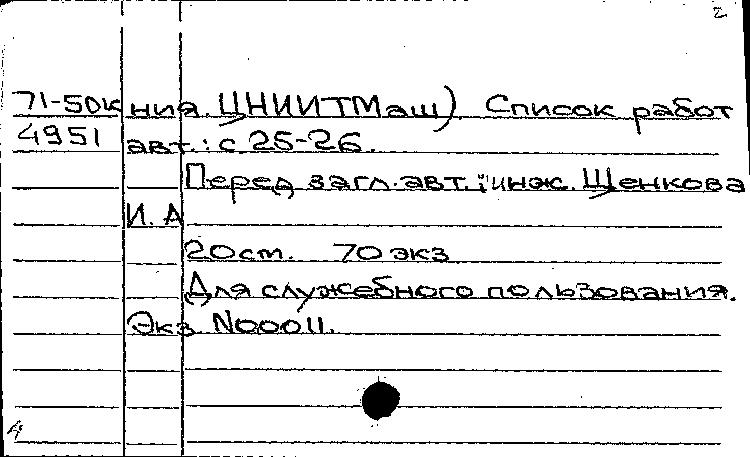 2
71-50к ния. ЦНИИТМаш) Список работ
4951 авт.: с 25-26.
Перед загл. авт.: инж. Щенкова
И. А
20 ст. 70 экз
Для служебного пользования.
Экз N00011.
4